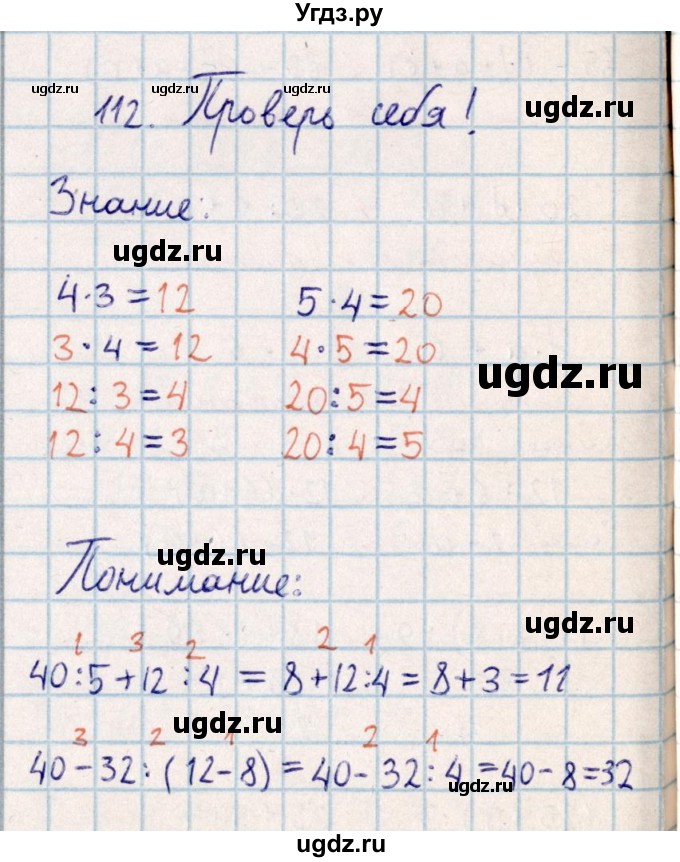 Угдз.ру
ugdz.ru ugdz.ru
112. Проверь себя!
Знание:
ugdz.ru
4·3=12 5·4=20
3·4=12 4·5=20
ugdz.ru
12:3=4 20:5=4
12:4=3 20:4=5
ugdz.ru
Понимание:
1 3 2 2 1
40:5+12:4=8+12:4=8+3=11
ugdz.ru
3 2 1 2 1
40-32:(12-8)=40-32:4=40-8=32
ugdz.ru
ugdz.ru